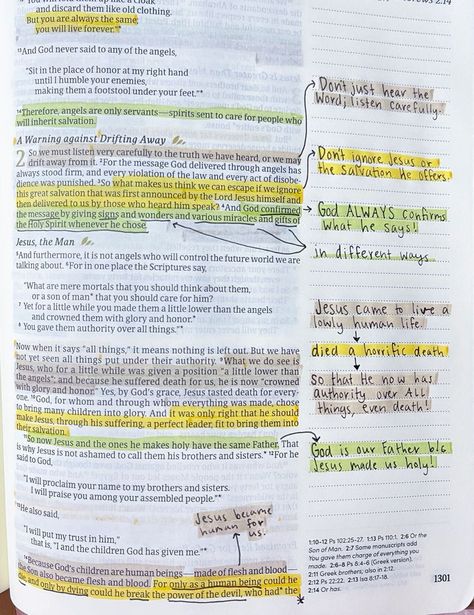 and discard them like old clothing.
But you are always the same;
you will live forever."*
13And God never said to any of the angels,
"Sit in the place of honor at my right hand
until I humble your enemies,
making them a footstool under your feet."*
14Therefore, angels are only servants—spirits sent to care for people who
will inherit salvation.
A Warning against Drifting Away
2 So we must listen very carefully to the truth we have heard, or we may
drift away from it. 2For the message God delivered through angels has
always stood firm, and every violation of the law and every act of disobe-
dience was punished. 3So what makes us think we can escape if we ignore
this great salvation that was first announced by the Lord Jesus himself and
then delivered to us by those who heard him speak? 4And God confirmed
the message by giving signs and wonders and various miracles and gifts of
the Holy Spirit whenever he chose.
Jesus, the Man
5And furthermore, it is not angels who will control the future world we are
talking about. 6For in one place the Scriptures say,
"What are mere mortals that you should think about them,
or a son of man* that you should care for him?
7 Yet for a little while you made them a little lower than the angels
and crowned them with glory and honor.*
8 You gave them authority over all things."*
Now when it says "all things," it means nothing is left out. But we have
not yet seen all things put under their authority. 9What we do see is
Jesus, who for a little while was given a position "a little lower than
the angels"; and because he suffered death for us, he is now "crowned
with glory and honor." Yes, by God's grace, Jesus tasted death for every-
one. 10God, for whom and through whom everything was made, chose
to bring many children into glory. And it was only right that he should
make Jesus, through his suffering, a perfect leader, fit to bring them into
their salvation.
11So now Jesus and the ones he makes holy have the same Father. That
is why Jesus is not ashamed to call them his brothers and sisters.* 12For he
said to God,
"I will proclaim your name to my brothers and sisters.
I will praise you among your assembled people."*
13He also said,
"I will put my trust in him,"
that is, "I and the children God has given me."*
14Because God's children are human beings—made of flesh and blood—
the Son also became flesh and blood. For only as a human being could he
die, and only by dying could he break the power of the devil, who had* the
Jesus became
human for
us.
Don't just hear the
Word; listen carefully!
Don't ignore Jesus or
the salvation He offers.
God ALWAYS confirms
what He says!
in different ways
Jesus came to live a
lowly human life.
died a horrific death
so that He now has
authority over All
things, even death!
God is our Father b/c
Jesus made us holy!
1:10-12 Ps 102:25-27. 1:13 Ps 110:1. 2:6 Or the
Son of Man. 2:7 Some manuscripts add
You gave them charge of everything you
made. 2:6-8 Ps 8:4-6 (Greek version).
2:11 Greek brothers; also in 2:12.
2:12 Ps 22:22. 2:13 Isa 8:17-18.
2:14 Or has.
1301